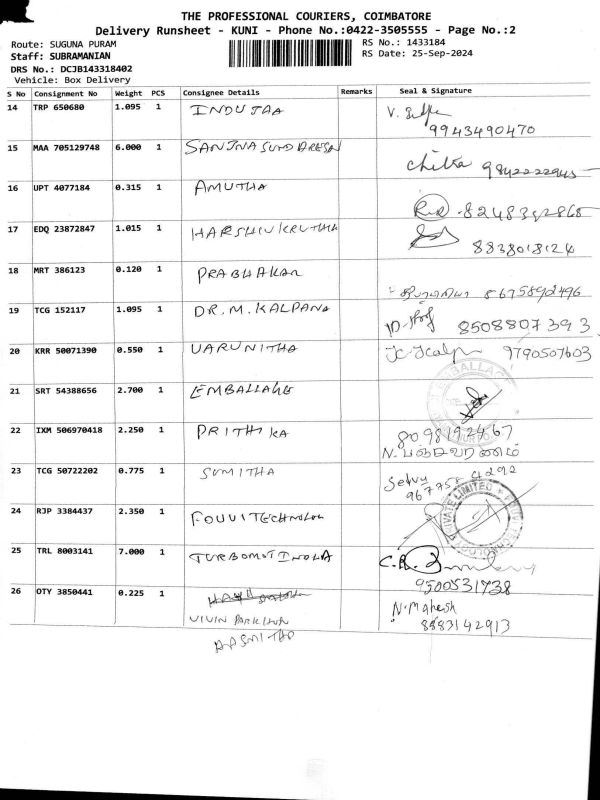 THE PROFESSIONAL COURIERS, COIMBATORE
Delivery Runsheet - KUNI - Phone No.:0422-3505555 - Page No.:2
Route: SUGUNA PURAM RS No.: 1433184
Staff: SUBRAMANIAN RS Date: 25-Sep-2024
DRS No.: DCJB143318402
Vehicle: Box Delivery
S No Consignment No Weight PCS Consignee Details Remarks Seal & Signature
14 TRP 650680 1.095 1 INDUJAA V.
9943490470
15 MAA 705129748 6.000 1 SANJNA SUNDARESAN
Chitra 9842222945
16 UPT 4077184 0.315 1 AMUTHA
17 EDQ 23872847 1.015 1 HARSHIV KRUTHIK
8838018124
18 MRT 386123 0.120 1 PRABHAKAR
5675892496
19 TCG 152117 1.095 1 DR.M.KALPANA
8508807393
20 KRR 50071390 0.550 1 VARUNITHA 9790507603
21 SRT 54388656 2.700 1 EMBALLAGE
22 IXM 506970418 2.250 1 PRITHIKA 8098192467
N. பஞ்சவரணம்
23 TCG 50722202 0.775 1 SUMITHA Selvy
24 RJP 3384437 2.350 1 FOUVI TECHNOLOG
PRIVATE LIMITED
25 TRL 8003141 7.000 1 TURBOMOT INDIA
9500531738
26 OTY 3850441 0.225 1 N. Mahesh
VIVIN PARKHUN 8883142913
AASMITHA